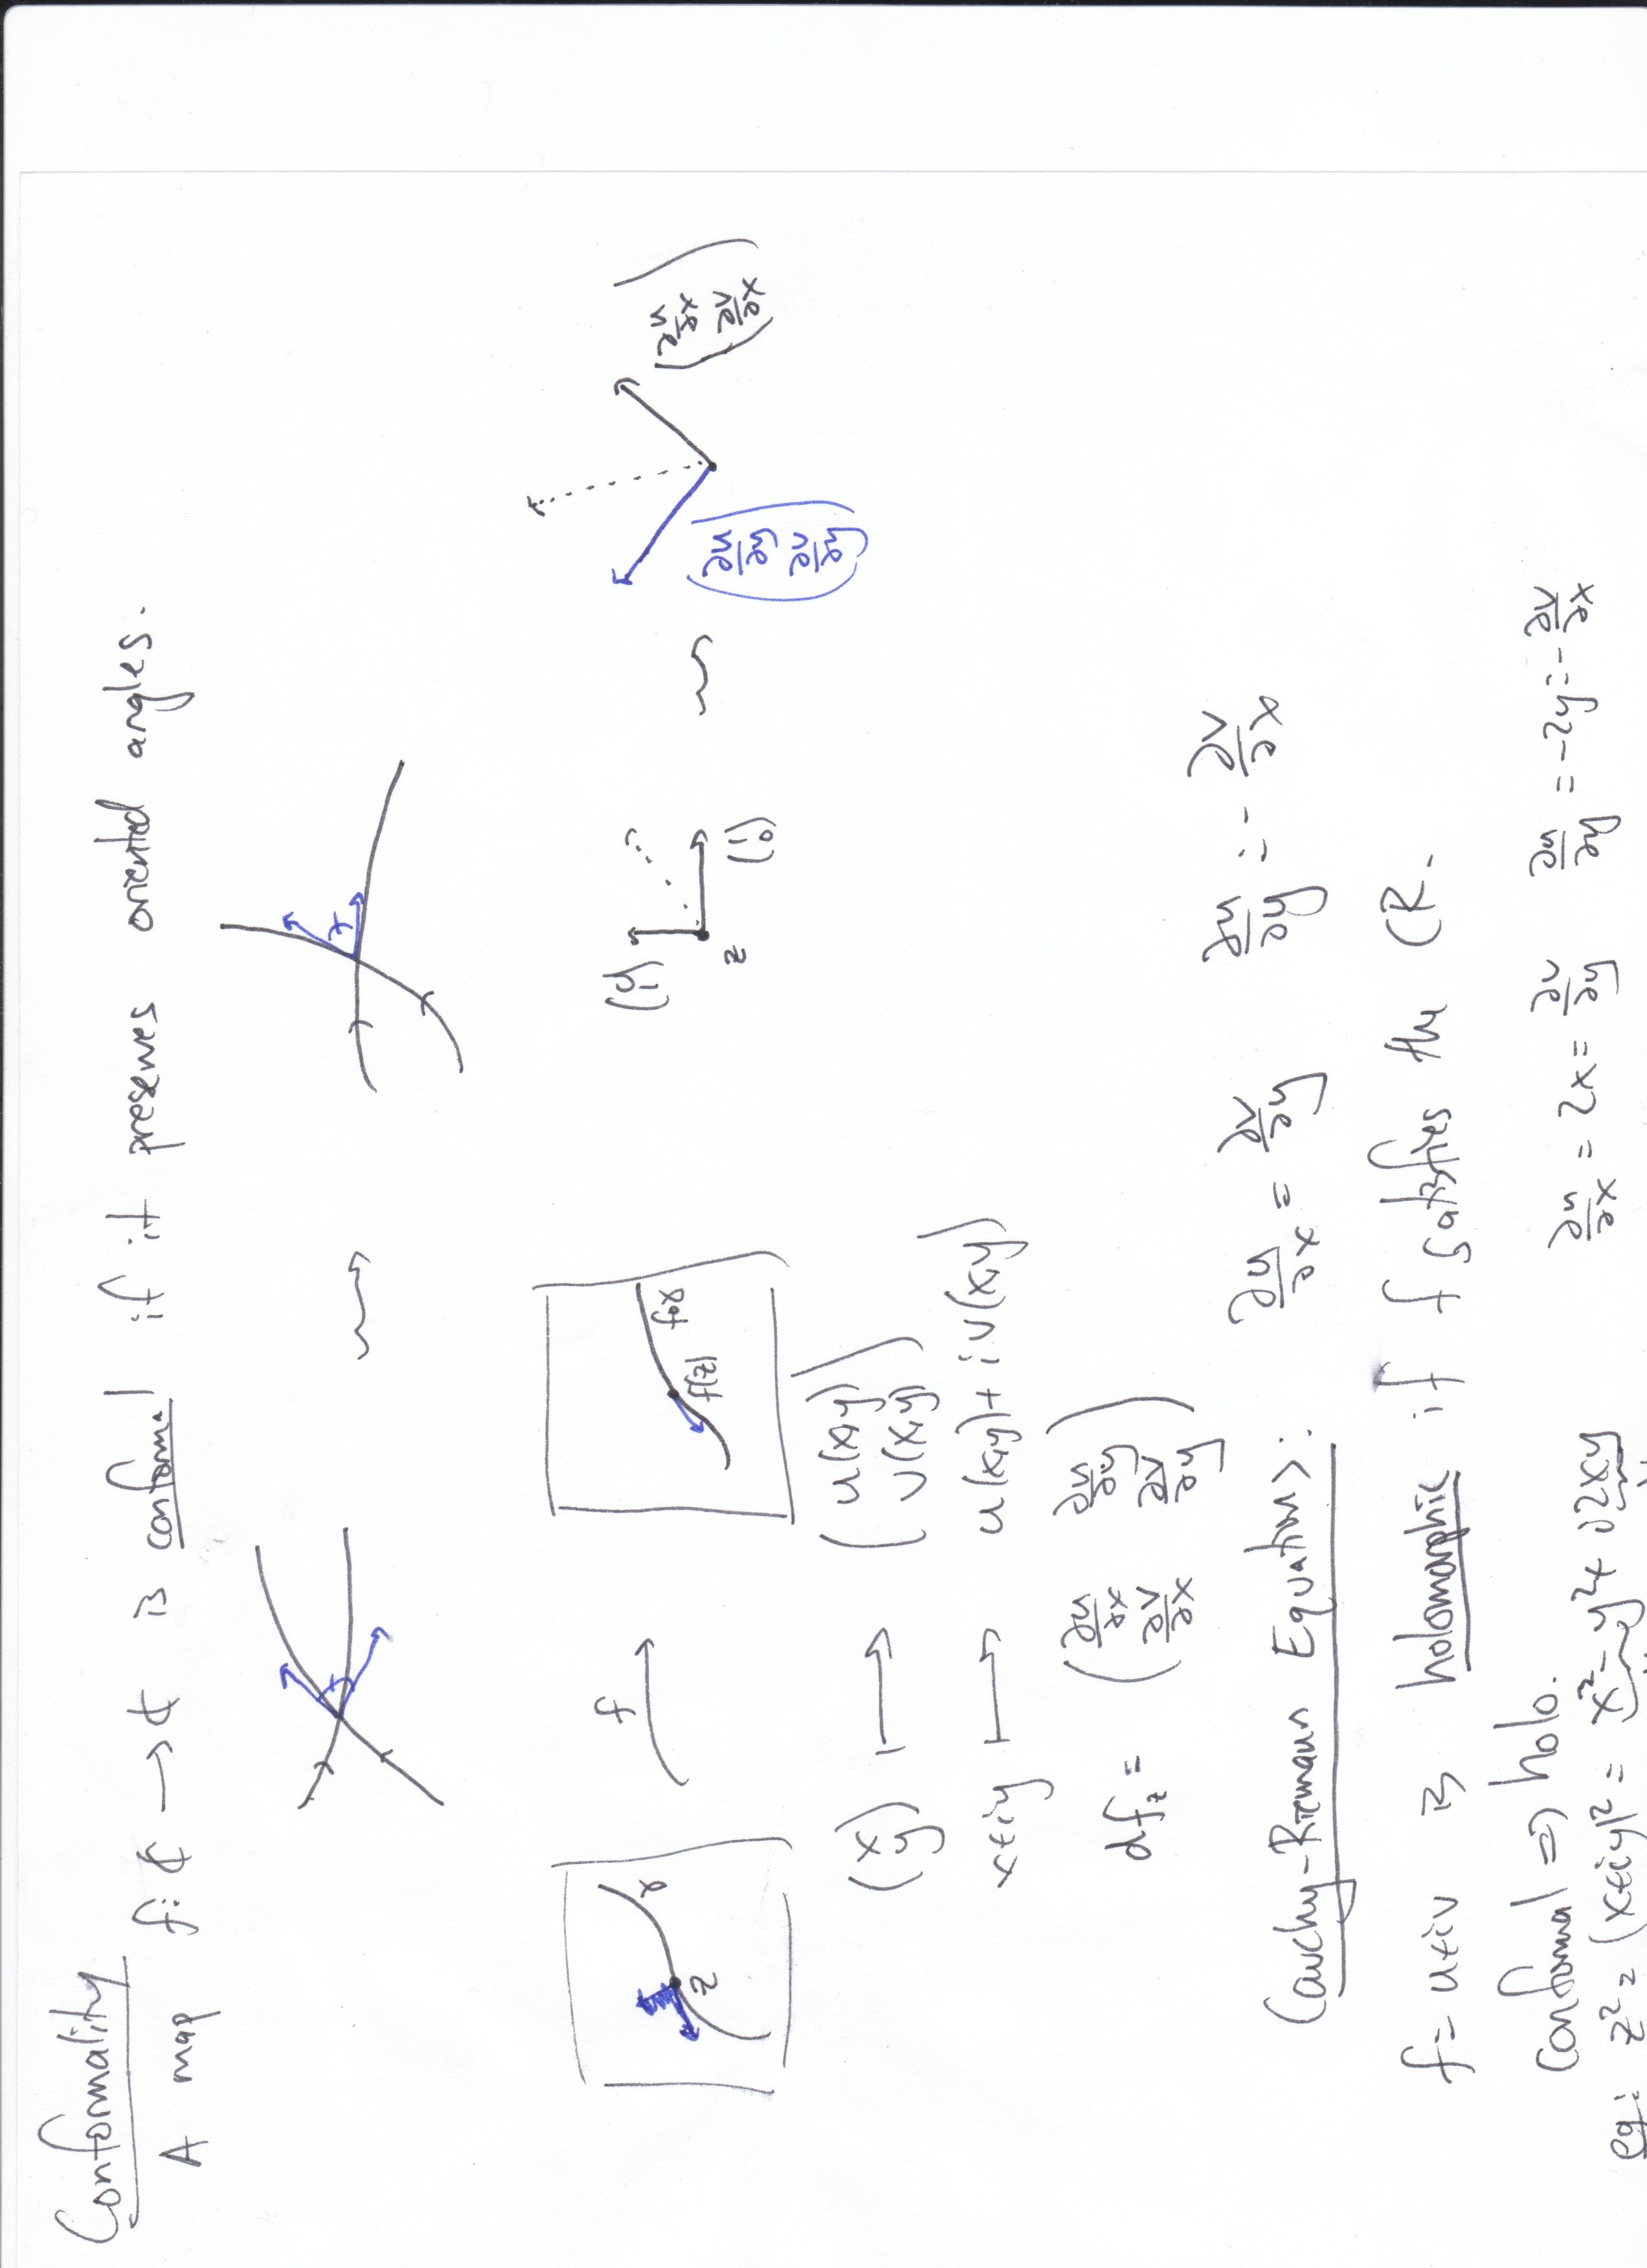 Conformality
A map f: ℂ → ℂ is conformal if it preserves oriented angles.
z γ f f(z) f∘γ
(0 1) z (1 0)
(∂u/∂y ∂v/∂y) (∂u/∂x ∂v/∂x)
(x y) ↦ (u(x,y) v(x,y))
x+iy ↦ u(x,y) + i v(x,y)
df_z = (∂u/∂x ∂u/∂y ∂v/∂x ∂v/∂y)
Cauchy-Riemann Equations: ∂u/∂x = ∂v/∂y ∂u/∂y = - ∂v/∂x
f = u+iv is holomorphic if f satisfies the CR.
Conformal ⇒ holo.
eg: z² = (x+iy)² = x²-y² + i2xy ∂u/∂x = 2x = ∂v/∂y ∂u/∂y = -2y = -∂v/∂x